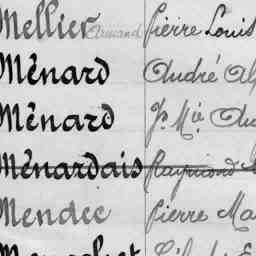 Mellier Armand Pierre Louis
Ménard André Al
Ménard Jh Mie Au
Ménardais Raymond
Mendee Pierre Ma